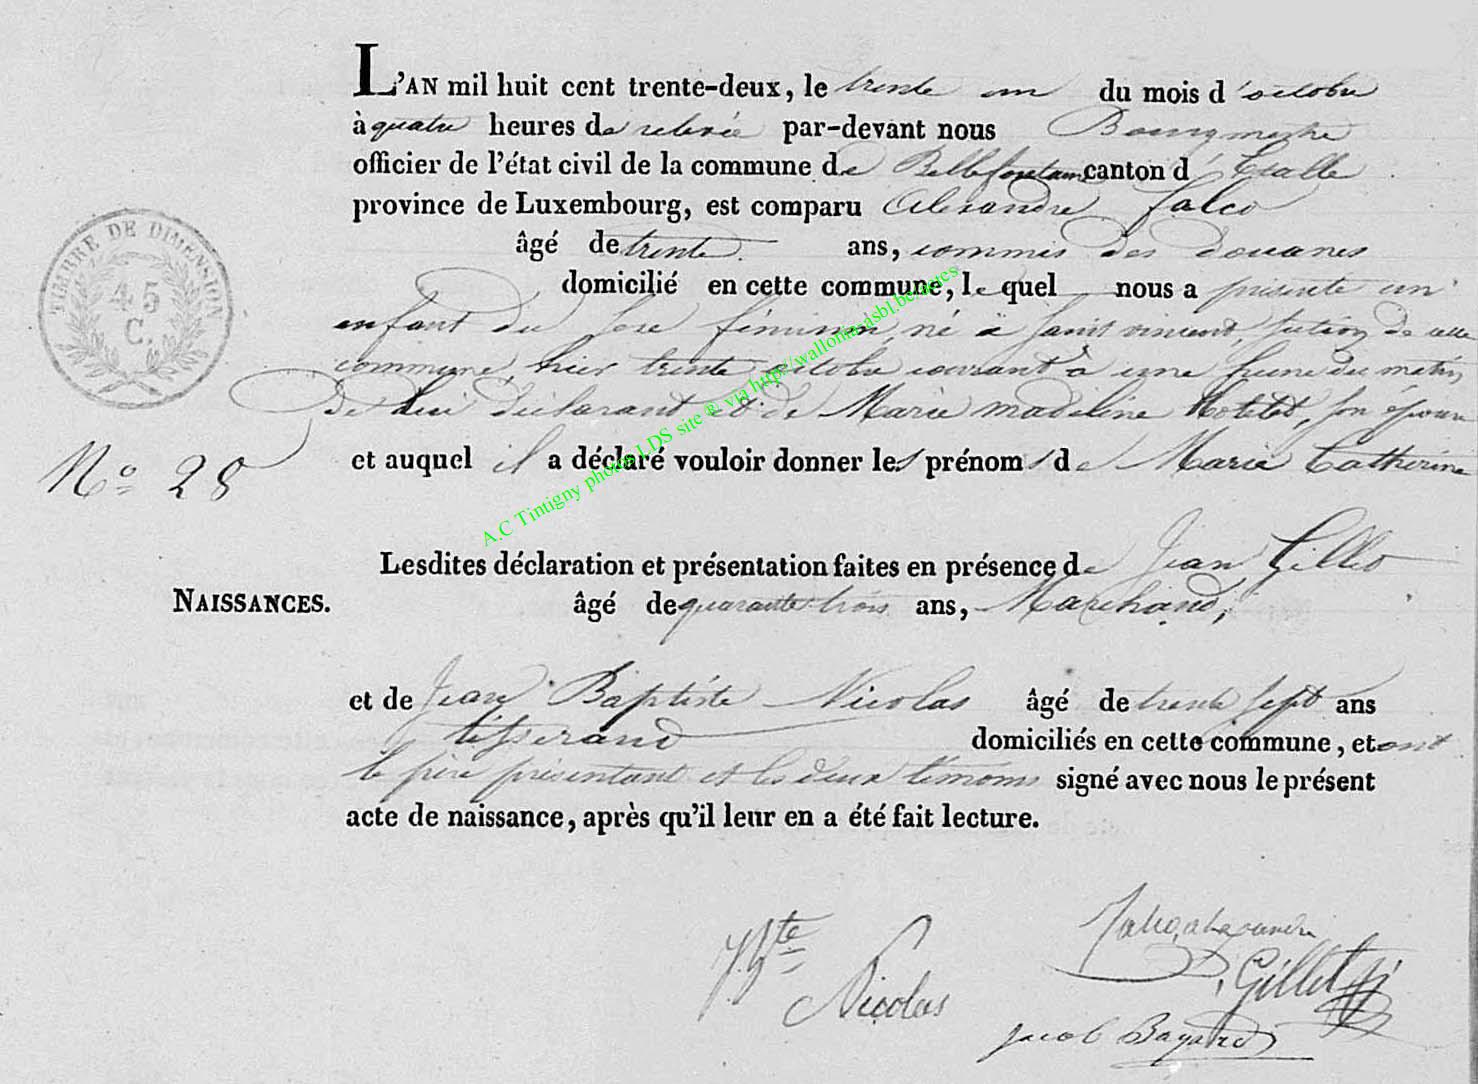 L'AN mil huit cent trente-deux, le trente un du mois d'octobre
à quatre heures de relevée par-devant nous Bourgmestre
officier de l'état civil de la commune de Bellefontaine canton d'Etalle
province de Luxembourg, est comparu Alexandre falco
TIMBRE DE DIMENSION
45
C.
âgé de trente ans, commis des douanes
domicilié en cette commune, le quel nous a présenté un
enfant du sexe féminin, né à Saint vincent, section de cette
commune, hier trente octobre courant à une heure du matin
de lui déclarant et de Marie madeleine, son épouse
et auquel il a déclaré vouloir donner les prénoms de Marie Catherine
N° 28
Lesdites déclaration et présentation faites en présence de Jean Gillet
NAISSANCES.
âgé de quarante trois ans, Marchand,
et de Jean Baptiste Nicolas âgé de trente sept ans
tisserand domiciliés en cette commune, et ont
le père présentant et les deux témoins signé avec nous le présent
acte de naissance, après qu'il leur en a été fait lecture.
A.C Tintigny photos LDS site ® via http://wallonia.asbl.be/actes
falco, alexandre
J. Bte
Nicolas
Gillet
jacob Bayard